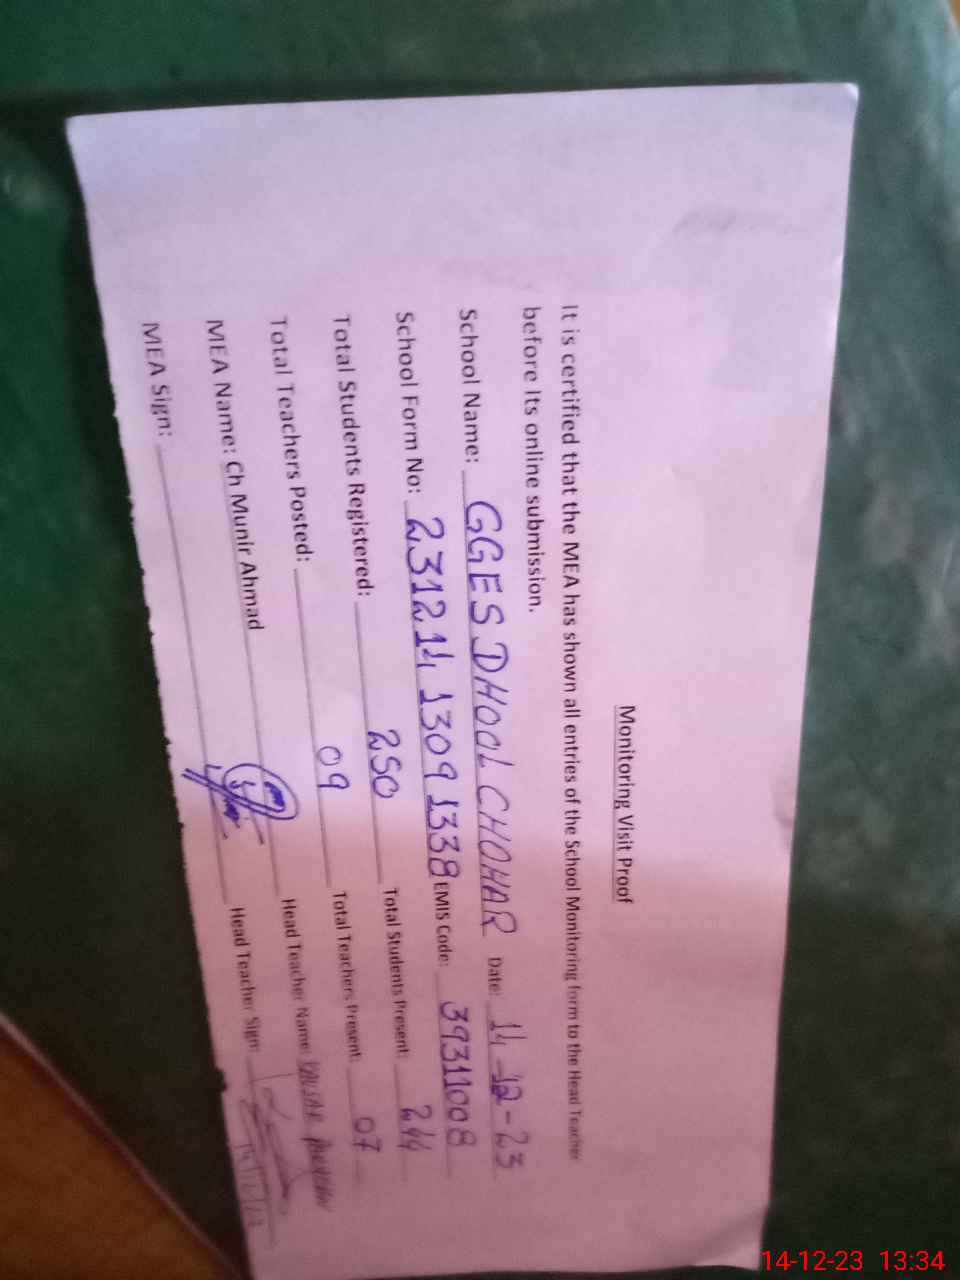 Monitoring Visit Proof
It is certified that the MEA has shown all entries of the School Monitoring form to the Head Teacher
before Its online submission.
School Name: GGES DHOOL CHOHAR Date: 14-12-23
School Form No: 231214 1309 1338 EMIS Code: 39311008
Total Students Registered: 250 Total Students Present: 244
Total Teachers Posted: 09 Total Teachers Present: 07
MEA Name: Ch Munir Ahmad Head Teacher Name: KAUSAR PARVEEN
MEA Sign: Head Teacher Sign:
14/12/23
14-12-23 13:34